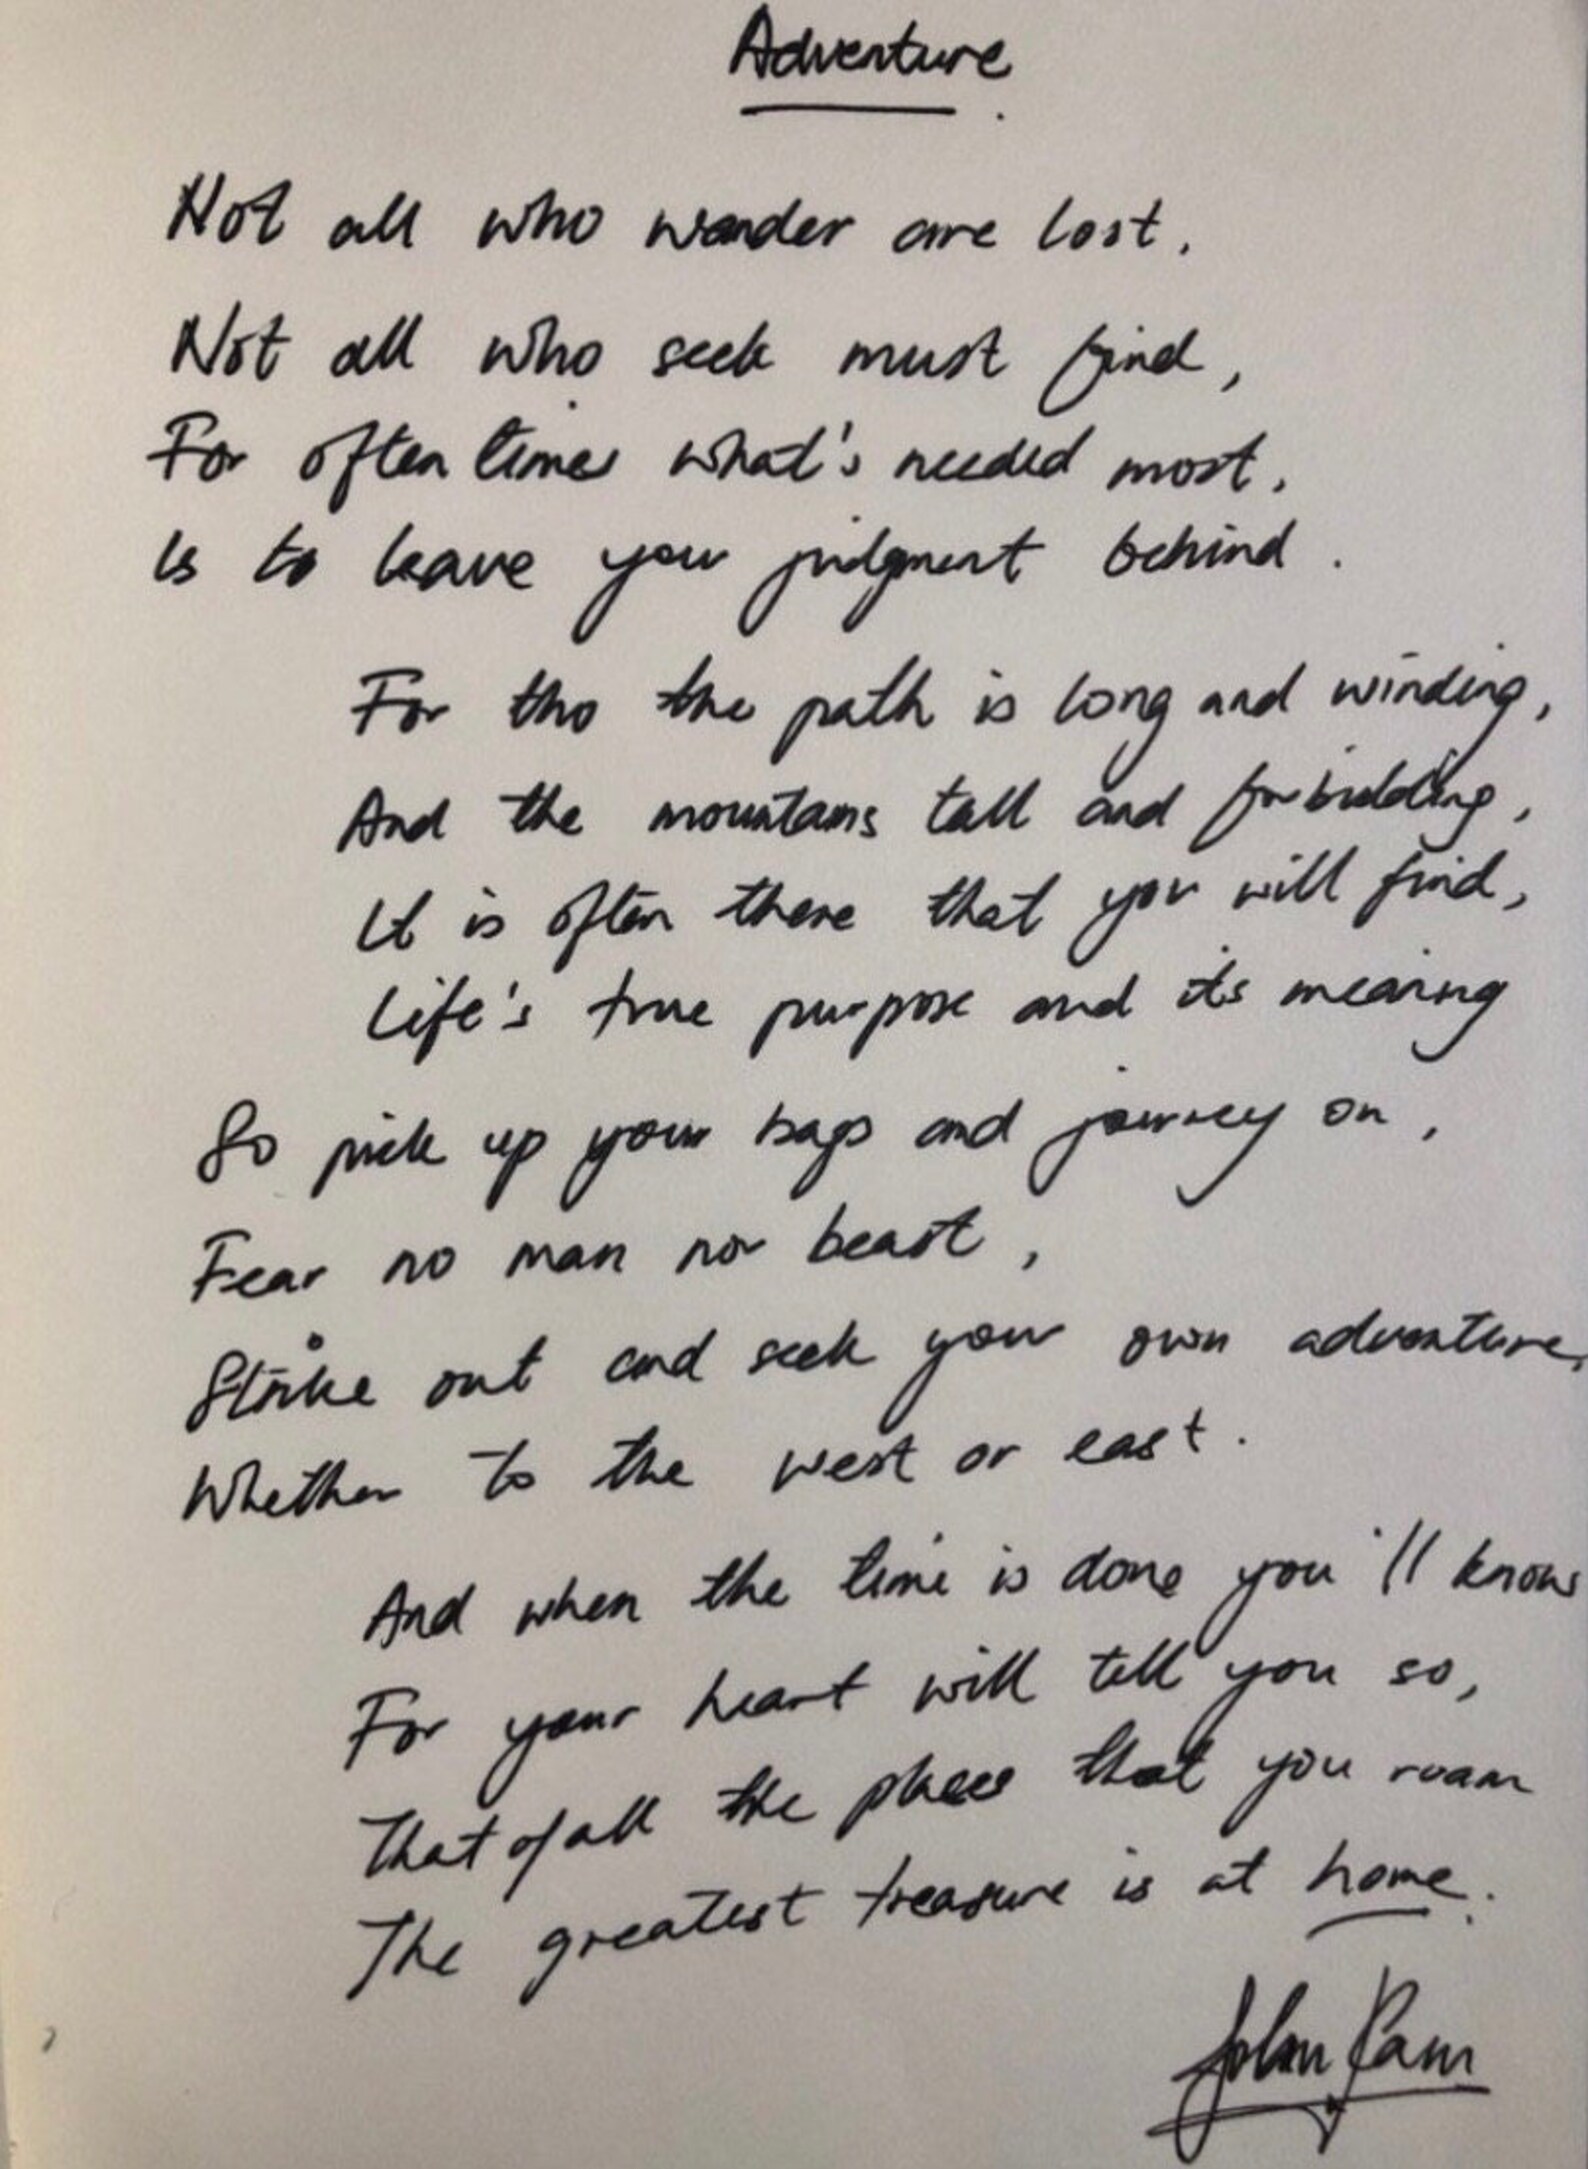 Adventure
Not all who wander are lost,
Not all who seek must find,
For often times what's needed most,
Is to leave your judgment behind.
For tho the path is long and winding,
And the mountains tall and forbidding,
It is often there that you will find,
Life's true purpose and its meaning
So pick up your bags and journey on,
Fear no man nor beast,
Strike out and seek your own adventure,
Whether to the west or east.
And when the time is done you'll know
For your heart will tell you so,
That of all the places that you roam
The greatest treasure is at home.
John